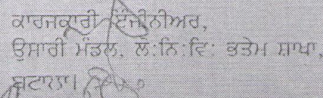 ਕਾਰਜਕਾਰੀ ਇੰਜੀਨੀਅਰ,
ਉਸਾਰੀ ਮੰਡਲ, ਲੋ:ਨਿ:ਵਿ: ਭਤਮ ਸ਼ਾਖਾ,
ਬਟਾਲਾ।